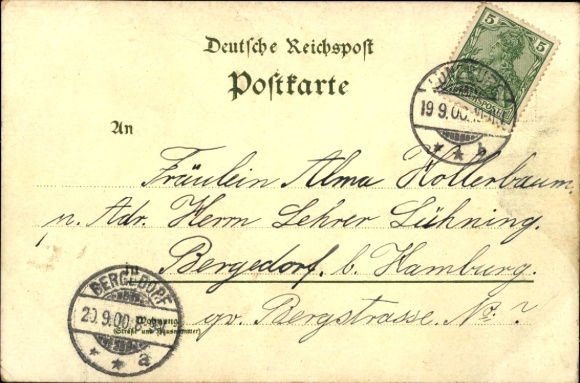 Deutsche Reichspost
Postkarte
5 5
19.9.00.
* * b
An
Fräulein Alma Hollerbaum,
p. Adr. Herrn Lehrer Lühning.
in
Bergedorf, b. Hamburg.
BERGEDORF
20.9.00.
* * a
Wohnung
(Straße und Hausnummer)
gr. Bergstrasse. No: ?